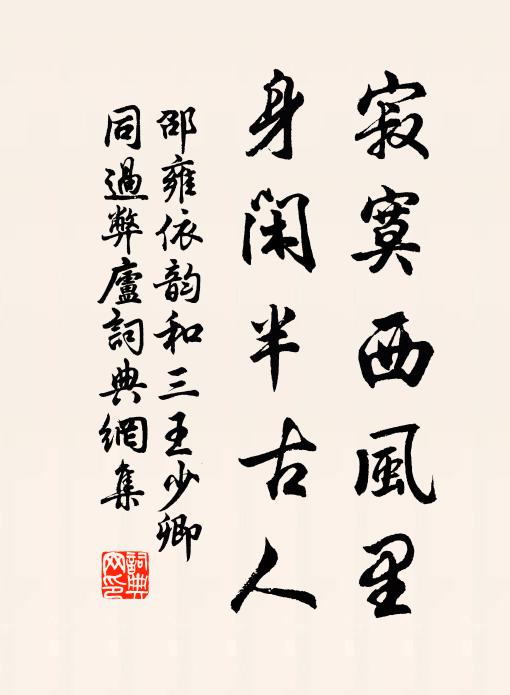 寂寞西風里
身閑半古人
邵雍依韵和三王少卿
同過弊廬詞典網集
詞典
網印